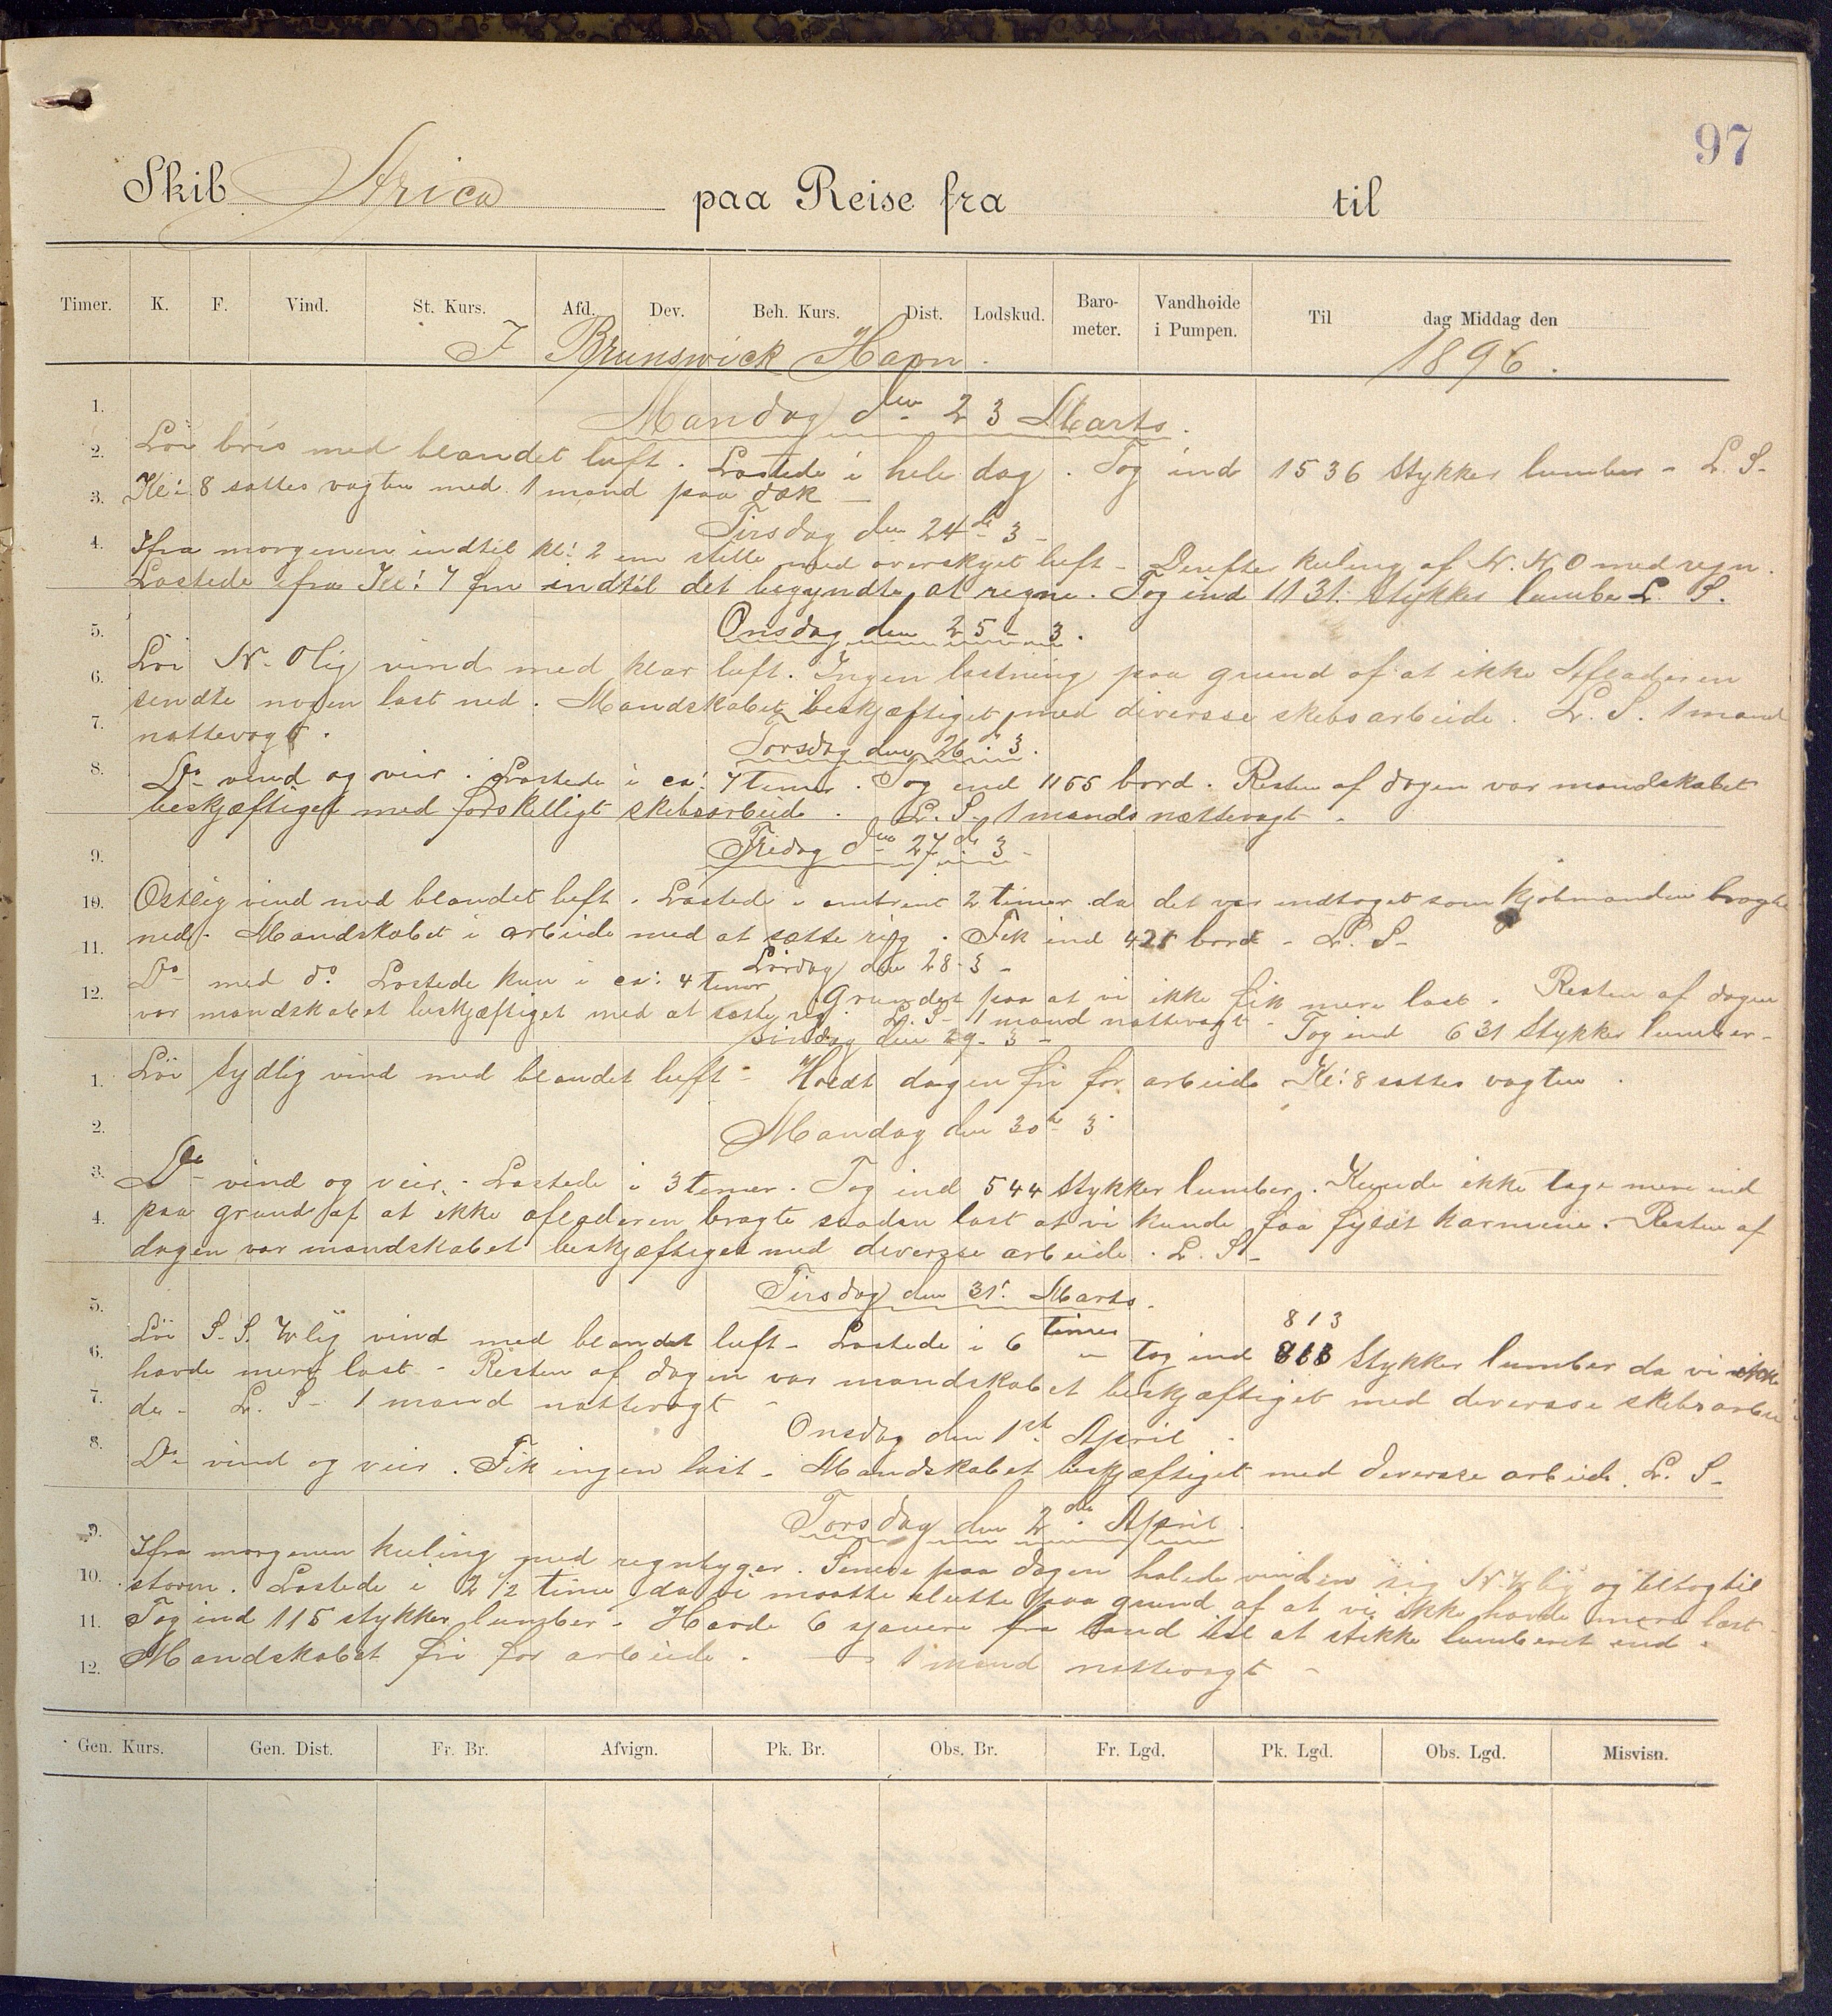 97
Skib Arica paa Reise fra til
Timer. K. F. Vind. St. Kurs. Afd. Dev. Beh. Kurs. Dist. Lodskud. Baro-meter. Vandhoide i Pumpen. Til dag Middag den
I Brunswick Havn. 1896.
Mandag den 23 Marts.
1.
2. Löi bris med blandet luft. Lastede i hele dag. Tog ind 1536 Stykker lumber - L. S-
3. Kl: 8 sattes vagten med 1 mand paa dæk -
Tirsdag den 24de 3 -
4. Ifra morgenen indtil kl: 2 em stille med overskyet luft - Derefter kuling af N.N.O med regn.
Lastede ifra Kl: 7 fm indtil det begyndte at regne. Tog ind 1131 Stykker lumber L. S.
5. Onsdag den 25 - 3.
6. Löi N. Olig vind med klar luft. Ingen lastning paa grund af at ikke Afladeren
7. sendte nogen last ned. Mandskabet beskjæftiget med diversse skibsarbeide. L. S. 1 mand
nattevagt.
Torsdag den 26de 3.
8. Do vind og veir. Lastede i ca: 7 timer. Tog ind 1155 bord. Resten af dagen var mandskabet
beskjæftiget med forskelligt skibsarbeide. L. S. 1 mands nattevagt.
9. Fredag den 27de 3 -
10. Ostlig vind med blandet luft. Lastede i omtrent 2 timer da det var indtaget som kjøbmanden bragte
11. ned. Mandskabet i arbeide med at sætte rig. Fik ind 421 bord - L. S-
Lördag den 28-3 -
12. Do med do. Lastede kun i ca: 4 timer, Grundet paa at vi ikke fik mere last. Resten af dagen
var mandskabet beskjæftiget med at sætte rig. L. S- 1 mand nattevagt - Tog ind 631 Stykker lumber -
Söndag den 29- 3 -
1. Löi Sydlig vind med blandet luft - Holdt dagen fri for arbeide Kl: 8 sattes vagten.
2. Mandag den 30te 3
3. Do vind og veir. - Lastede i 3 timer. Tog ind 544 Stykker lumber. Kunde ikke tage mere ind
4. paa grund af at ikke afladeren bragte saadan last at vi kunde faa fyldt karmene. Resten af
dagen var mandskabet beskjæftiget med diversse arbeide. L. S-
5. Tirsdag den 31: Marts.
813
6. Löi S.S.Wlig vind med blandet luft - Lastede i 6 timer - tog ind Stykker lumber da vi ikke
havde mere last - Resten af dagen var mandskabet beskjæftiget med diversse skibsarbei
7. de - L. S- 1 mand nattevagt -
Onsdag den 1st April
8. Do vind og veir. Fik ingen last - Mandskabet beskjæftiget med diversse arbeide. L. S-
Torsdag den 2den April
9. Ifra morgenen kuling med regnbyger. Senere paa dagen halede vinden sig N.Wlig og tiltog til
10. storm. Lastede i 2 1/2 time da vi maatte slutte paa grund af at vi ikke havde mere last -
11. Tog ind 115 stykker lumber - Havde 6 sjauere fra land til at stikke lumberet ind.
12. Mandskabet fri for arbeide. - 1 mand nattevagt -
Gen. Kurs. Gen. Dist. Fr. Br. Afvign. Pk. Br. Obs. Br. Fr. Lgd. Pk. Lgd. Obs. Lgd. Misvisn.